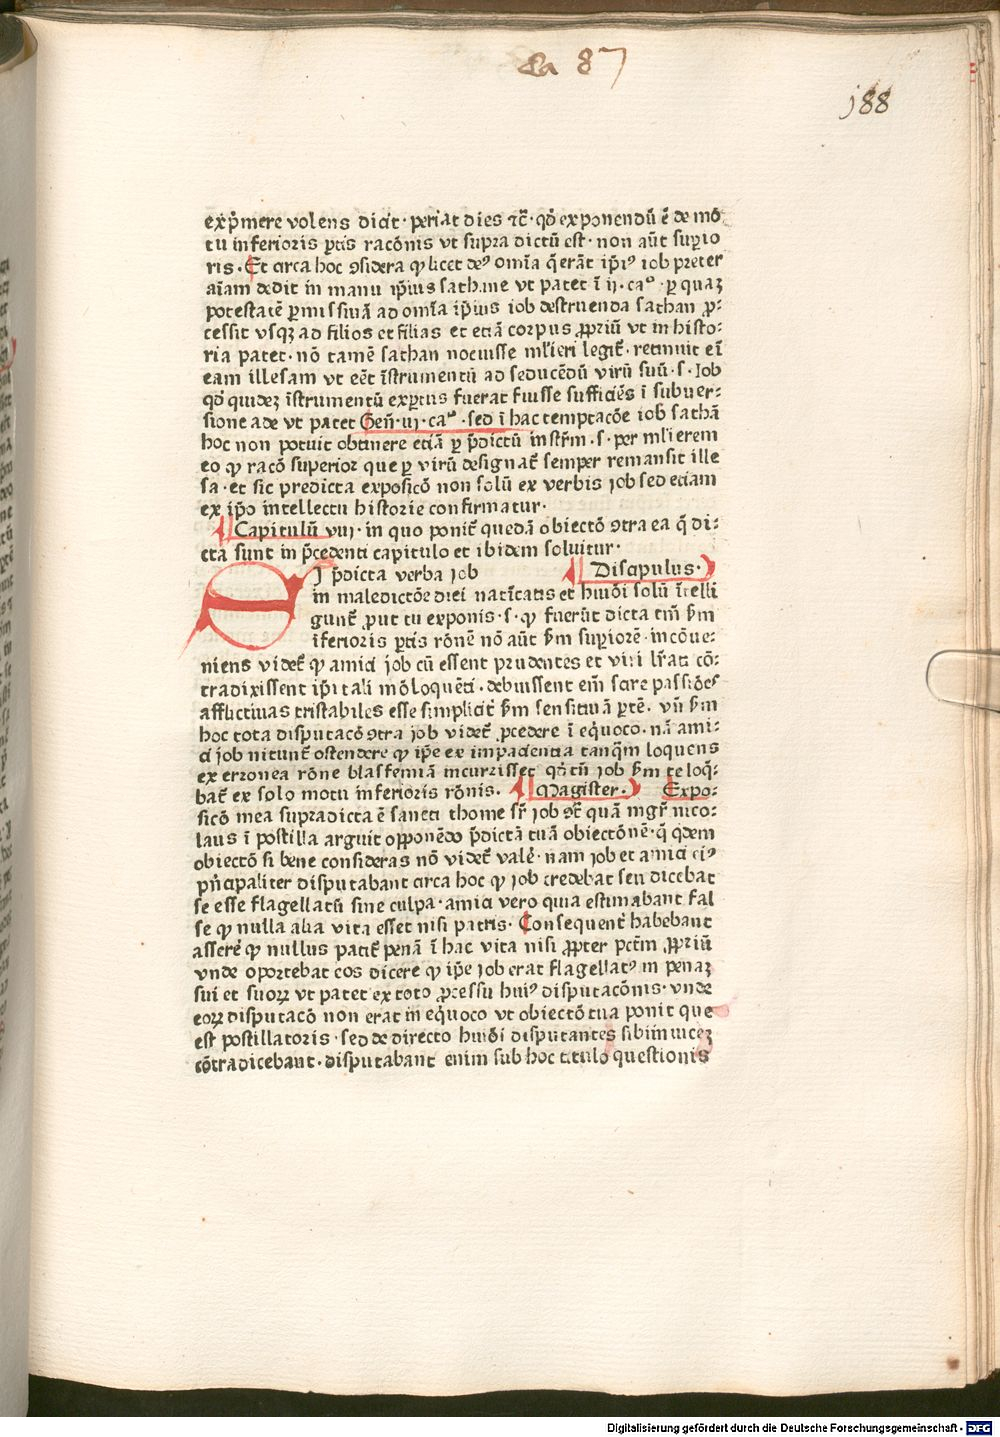 8a 87
188
exp̄mere volens dicit · periat dies ⁊c̄ · qđ exponendū ē de mō
tu inferioris ꝑtis racōnis vt supra dictū est · non aūt suꝑio
ris · Et circa hoc ꝯsidera ꝙ licet deꝰ omīa q̄ erāt ip̄iꝰ iob preter
aīam dedit in manu ip̄ius sathane vt patet ī ij · caº · ꝑ quaꝫ
potestatē ꝑmissiuā ad omīa ip̄ius iob destruenda sathan ꝓ-
cessit vsqꝫ ad filios et filias et etiā corpus ꝓpriū vt in histo-
ria patet · nō tamē sathan nocuisse ml̄ieri legit̄ · retinuit eī
eam illesam vt eēt īstrumentū ad seducēdū virū suū · s · Iob
qđ quideꝫ īstrumentū exꝑtus fuerat fuisse sufficiēs ī subuer-
sione ade vt patet Geñ · iij · caº · sed ī hac temptacōe iob sathā
hoc non potuit obtinere etiā ꝑ p̄dictū instr̄m · s · per ml̄ierem
eo ꝙ racō superior que ꝑ virū designat̄ semper remansit ille
sa · et sic predicta exposicō non solū ex verbis job sed etiam
ex ip̄o intellectu historie confirmatur ·
Capitulū viij · in quo ponit̄ quedā obiectō ꝯtra ea q̄ di-
cta sunt in p̄cedenti capitulo et ibidem soluitur ·
SI p̄dicta verba job Discipulus ·
in maledictōe diei natītatis et hmōi solū ītelli
gunt̄ ꝓut tu exponis · s · ꝙ fuerūt dicta tm̄ ẜm
īferioris ꝑtis rōnē nō aūt ẜm suꝑiorē · incōue-
niens videt̄ ꝙ amici job cū essent prudentes et viri lr̄ati cō-
tradixissent ip̄i tali mō loquēti · debuissent em̄ scire passiōes
afflictiuas tristabiles esse simplicit̄ ẜm sensitiuā ꝑtē · vn̄ ẜm
hoc tota disputacō ꝯtra job videt̄ ꝓcedere ī eq̇uoco · nā ami-
ci job nitunt̄ ostendere ꝙ ip̄e ex impaciencia tanq̄m loquens
ex erronea rōne blasfemiā incurrisset qđ tn̄ job ẜm te loq̄-
bat̄ ex solo motu inferioris rōnis · Magister · Expo-
sicō mea supradicta ē sancti thome sr̄ job ꝯt̄ quā mgr̄ nico-
laus ī postilla arguit opponēdo p̄dictā tuā obiectōnē · q̄ q̇dem
obiectō si bene consideras nō videt̄ valē · nam job et amici eiꝰ
pn̄cipaliter disputabant circa hoc ꝙ job credebat seu dicebat
se esse flagellatū sine culpa · amici vero quia estimabant fal
se ꝙ nulla alia vita esset nisi patris · Consequent̄ habebant
asserē ꝙ nullus patit̄ penā ī hac vita nisi ꝓpter pctm̄ ꝓpriū
vnde oportebat eos dicere ꝙ ip̄e job erat flagellatꝰ in penaꝫ
sui et suoꝝ vt patet ex toto ꝓcessu huiꝰ disputacōnis · vnde
eoꝝ disputacō non erat in eq̇uoco vt obiectō tua ponit que
est postillatoris · sed de directo hmōi disputantes sibiinuiceꝫ
cōtradicebant · disputabant enim sub hoc titulo questionis
Digitalisierung gefördert durch die Deutsche Forschungsgemeinschaft - DFG